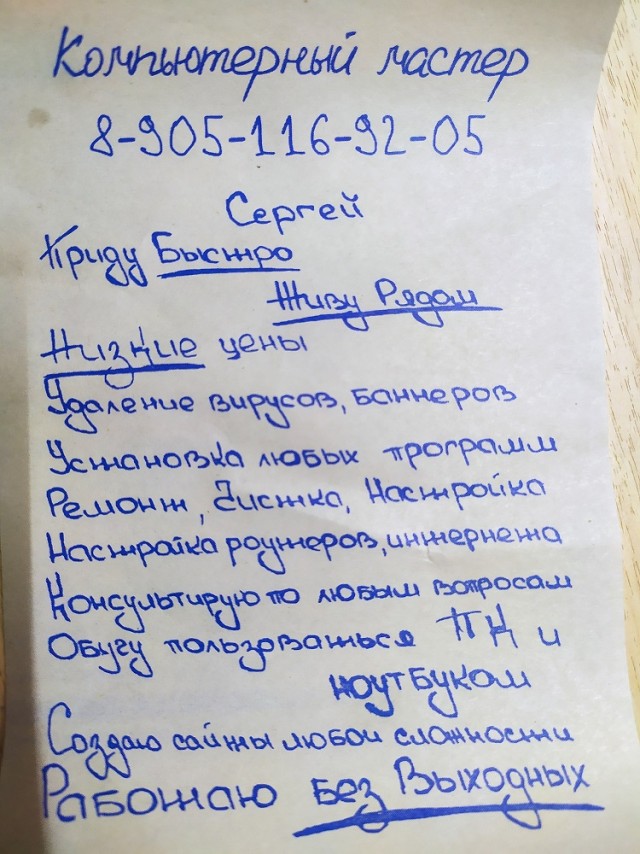 Компьютерный мастер
8-905-116-92-05
Сергей
Приду Быстро
Живу Рядом
Низкие цены
Удаление вирусов, баннеров
Установка любых программ
Ремонт, Чистка, Настройка
Настройка роутеров, интернета
Консультирую по любым вопросам
Обучу пользоваться ПК и
ноутбуком
Создаю сайты любой сложности
Работаю Без Выходных